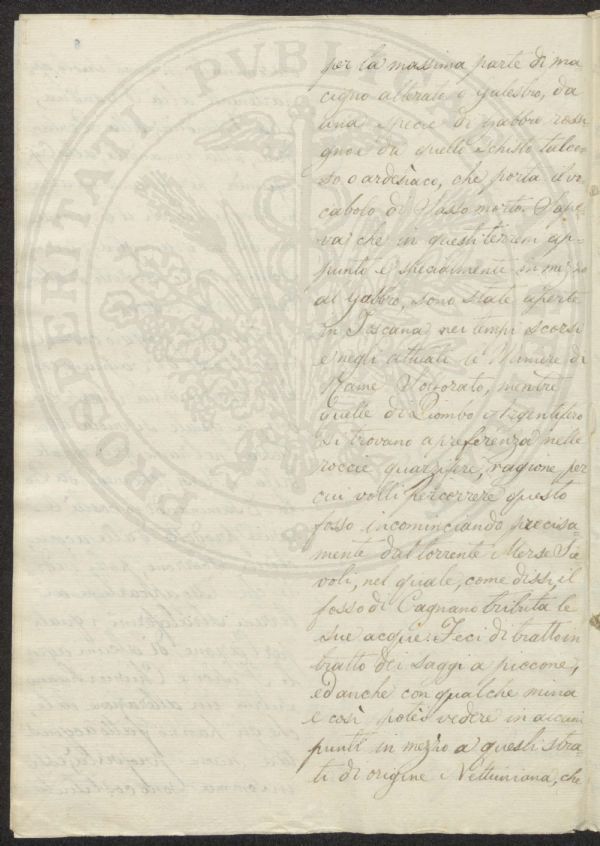 8
per la massima parte di ma=
cigno alterato o galestro, da
una specie di gabbro rossi
gno e da quello Schisto talco=
so, o ardesiaco, che porta il vo=
cabolo di Sasso morto. Sape=
va che in questi terreni ap=
punto e specialmente in mezzo
al gabbro, sono state aperte
in Toscana nei tempi scorsi
e negli attuali le Miniere di
Rame Solforato, mentre
quelle di Piombo Argentifero
si trovano a preferenza nelle
roccie quarzifere, ragione per
cui volli percorrere questo
fosso incominciando precisa=
mente dal torrente Merse Sa
voli, nel quale, come dissi, il
fosso di Cagnano tributa le
sue acque. Feci di tratto in
tratto dei saggi a piccone,
ed anche con qualche mina
e così potei vedere in alcuni
punti in mezzo a questi stra=
ti di origine Nettuniana, che
PROSPERITATI PVBLICAE